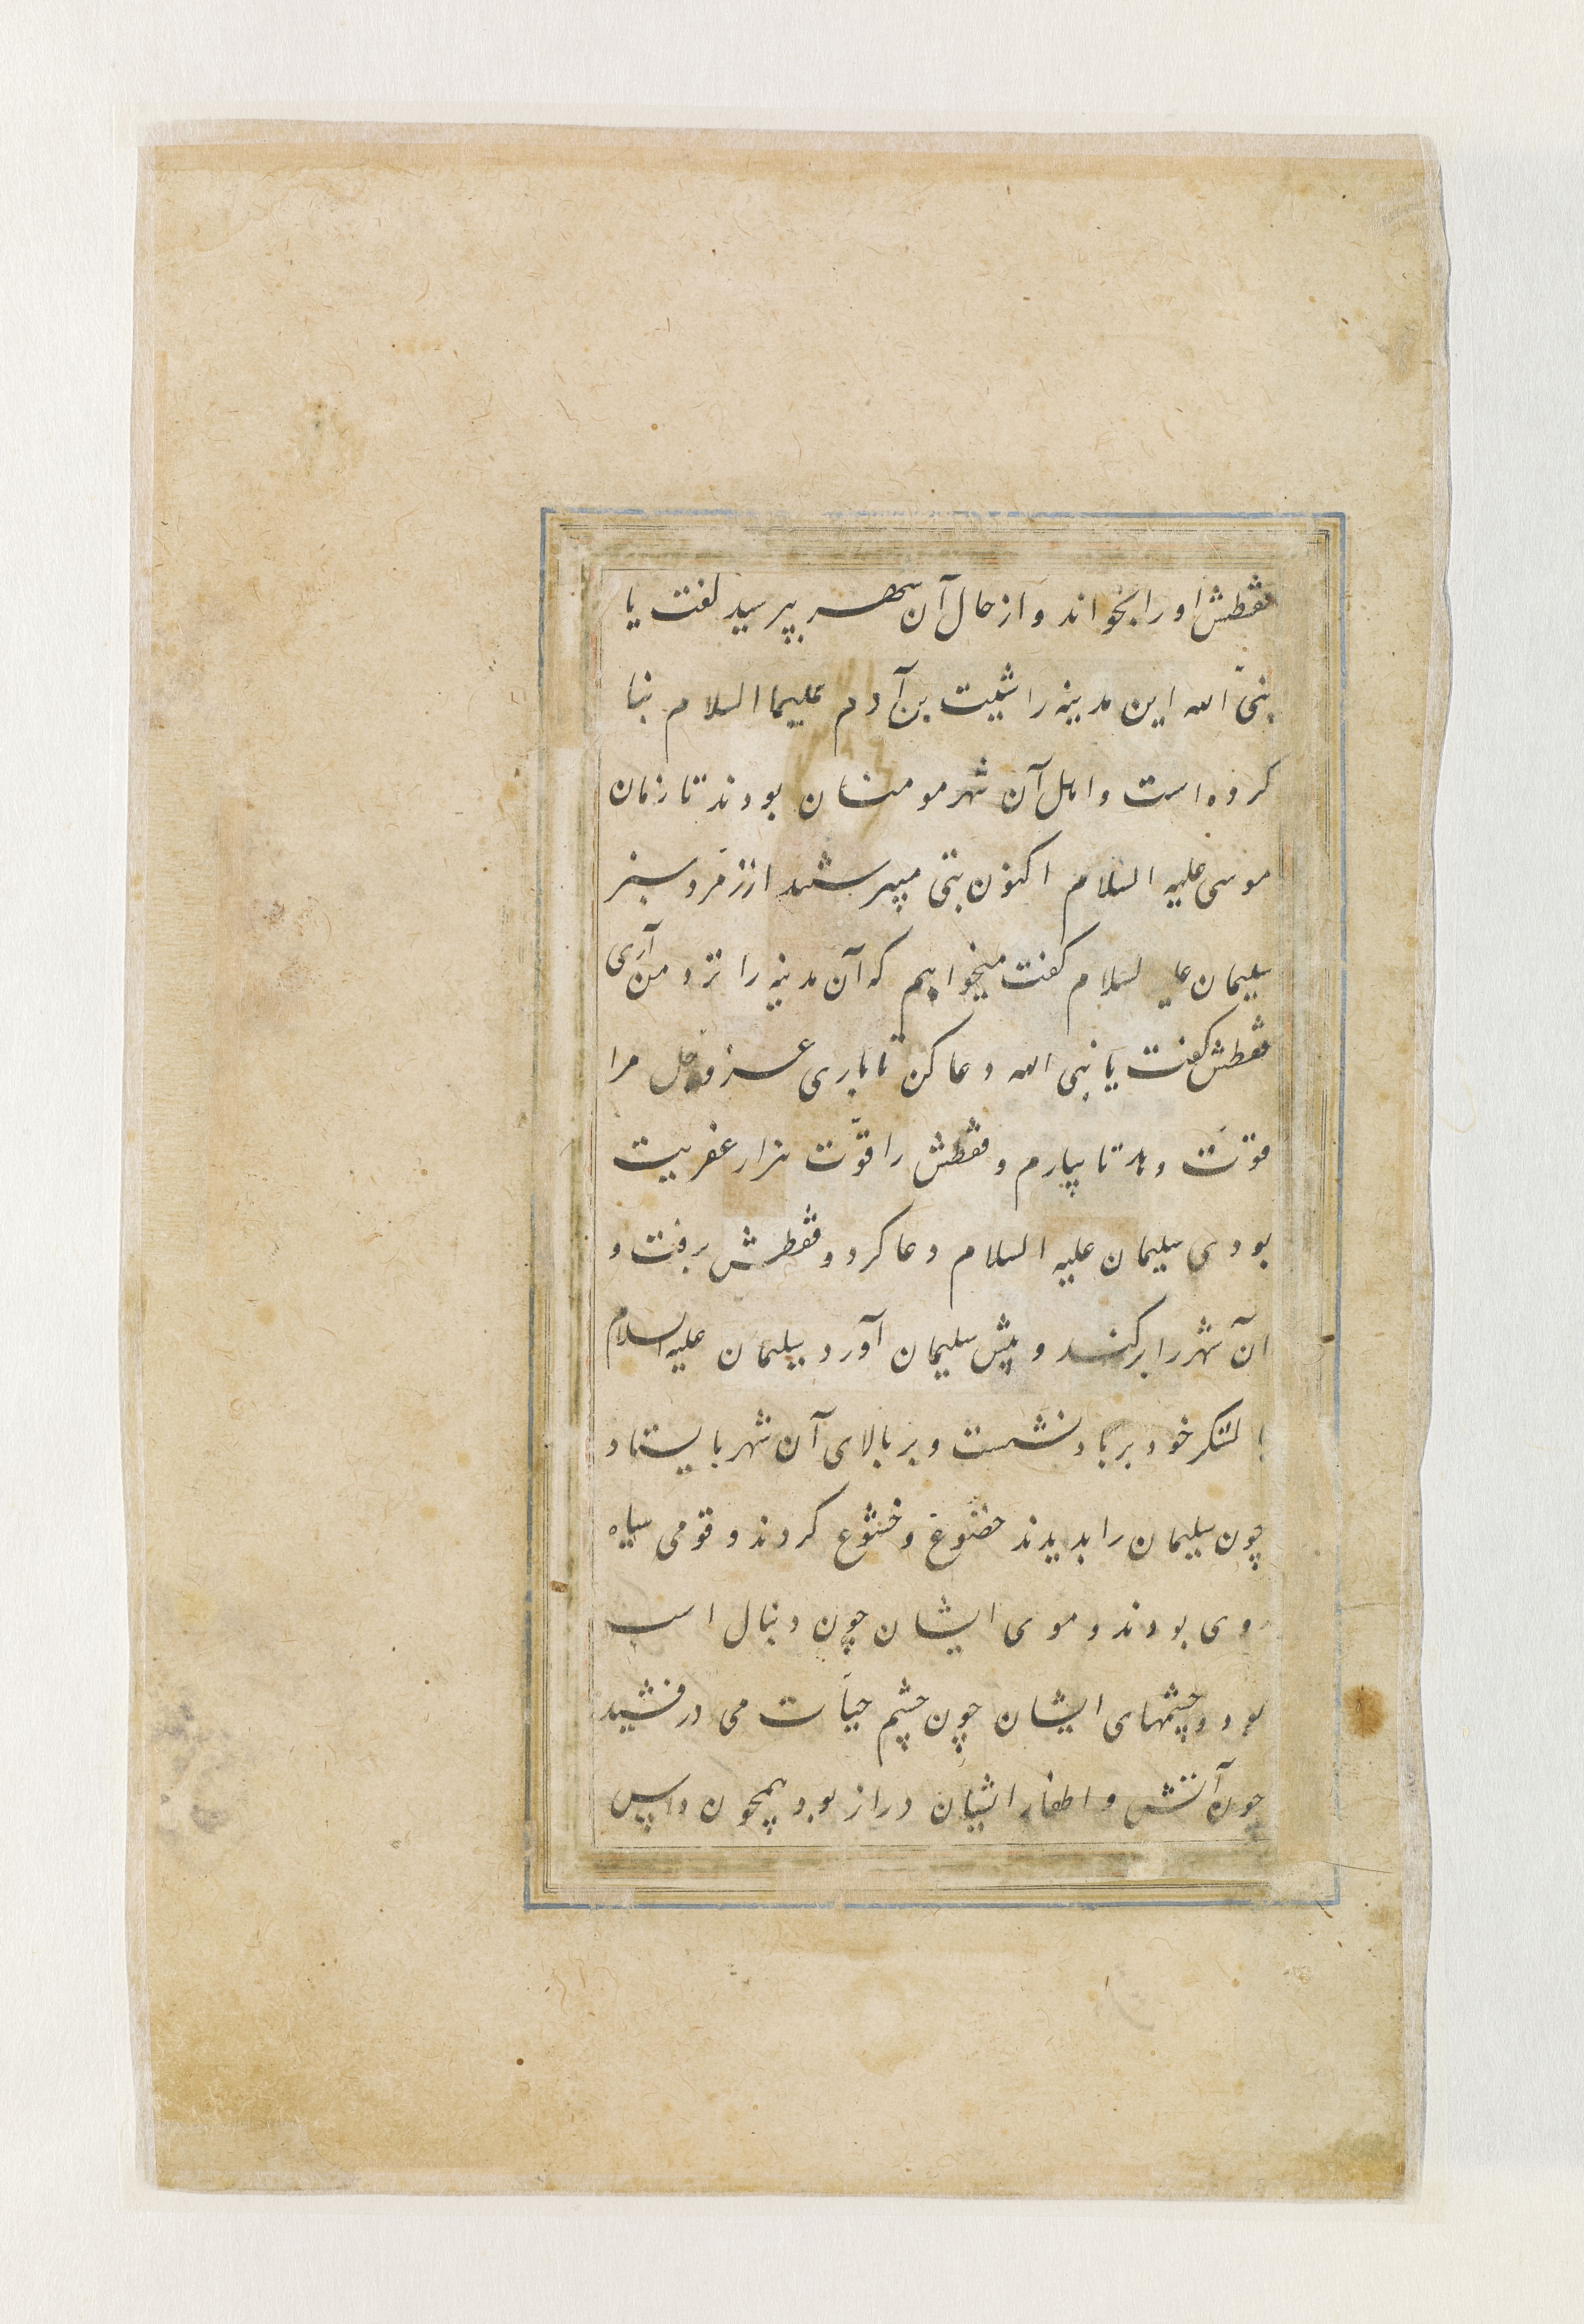 فقطش او را بخواند و از حال آن شهر بپرسید گفت یا
نبیّ الله این مدینه را شیث بن آدم علیهما السلام بنا
کرده است و اهل آن شهر مومنان بودند تا زمان
موسی علیه السلام اکنون بتی میپرستند از زمرد سبز
سلیمان علیه السلام گفت میخواهم که آن مدینه را نزد من آری
فقطش گفت یا نبی الله دعا کن تا باری عز و جل مرا
قوّت دهد تا بیارم و فقطش را قوّت هزار عفریت
بودی سلیمان علیه السلام دعا کرد و فقطش برفت و
آن شهر را برکند و پیش سلیمان آورد سلیمان علیه السلام
با لشکر خود بر باد نشست و بر بالای آن شهر بایستاد
چون سلیمان را بدیدند خضوع و خشوع کردند و قومی سیاه
روی بودند و موی ایشان چون دنبال اسب
بود و چشمهای ایشان چون چشم حیات می درفشید
چون آتش و اظفار ایشان دراز بود همچون داس